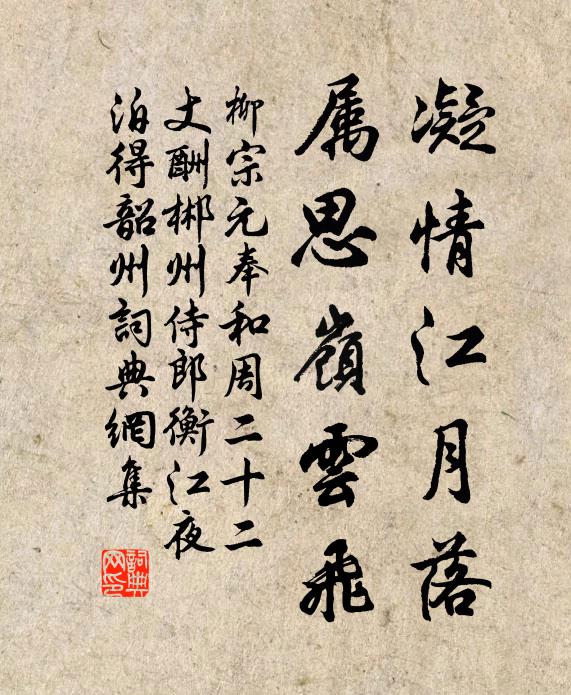 凝情江月落
属思嶺雲飛
柳宗元奉和周二十二
丈酬郴州侍郎衡江夜
泊得韶州詞典網集
詞典
网印